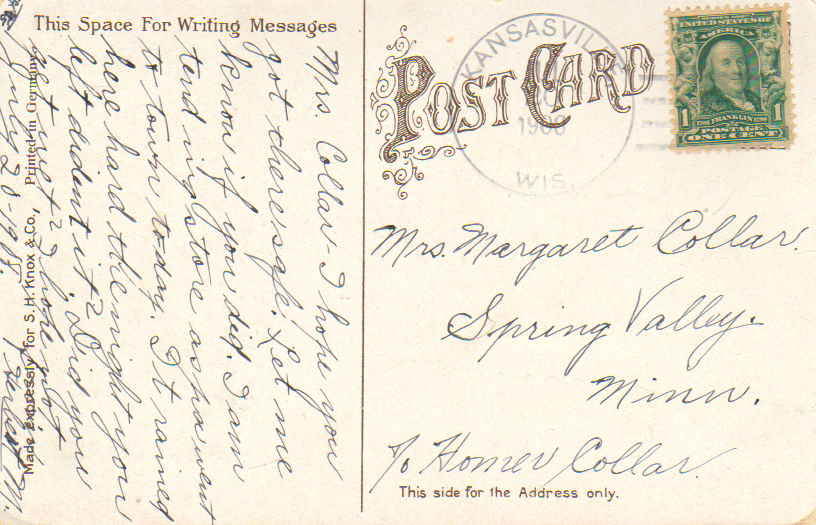 This Space For Writing Messages
Mrs. Collar I hope you
got there safe. Let me
know if you did. I am
tending store as pa went
to town today. It rained
here hard the night you
left dident it? Did you
get wet? I hope not
July 28-1908. Herbert M.
Made Expressly for S. H. Knox & Co., Printed in Germany
POST CARD
KANSASVILLE
1908
WIS.
UNITED STATES OF
AMERICA
1 FRANKLIN 1
POSTAGE
ONE CENT
Mrs. Margaret Collar.
Spring Valley.
Minn.
℅ Homer Collar.
This side for the Address only.